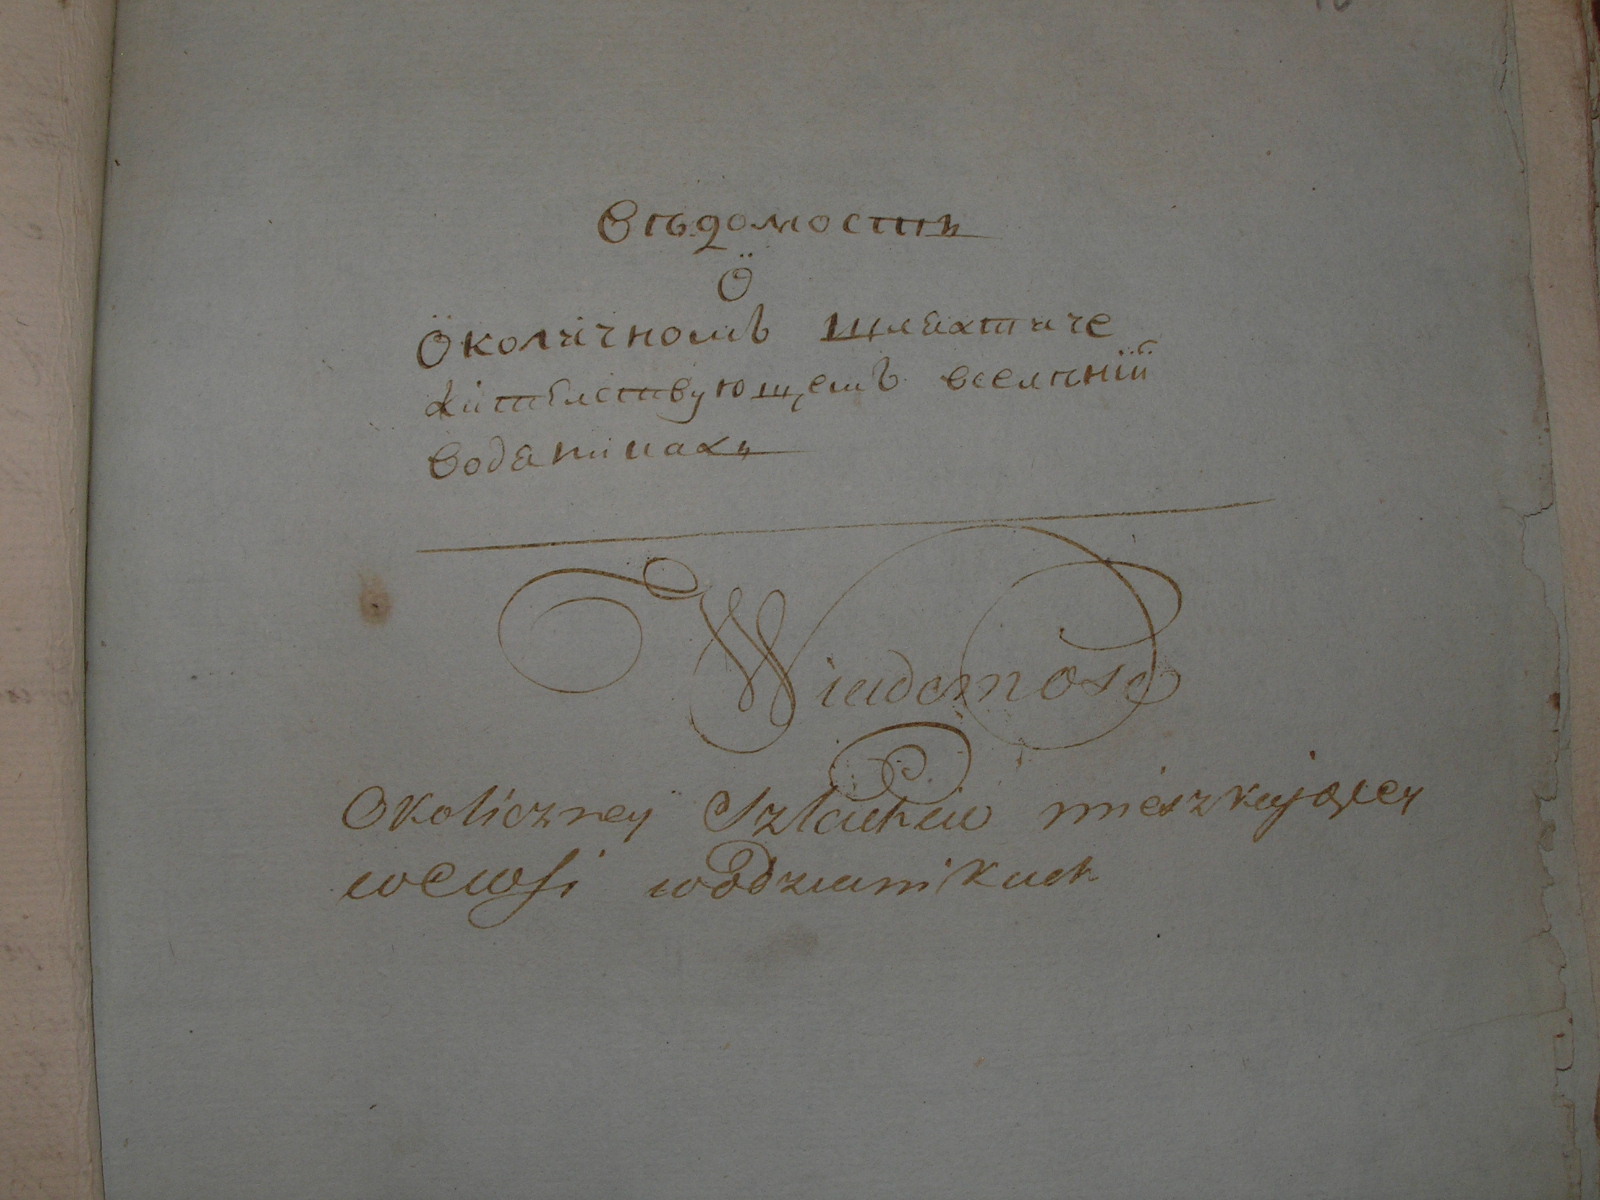 Вѣдомость
О
Околичномъ шляхтиче
жителствующемъ вселении
Водяникахъ
Wiadomosc
Okoliczney Szlachcie mieszkaiącey
weWsi Wodzianikach